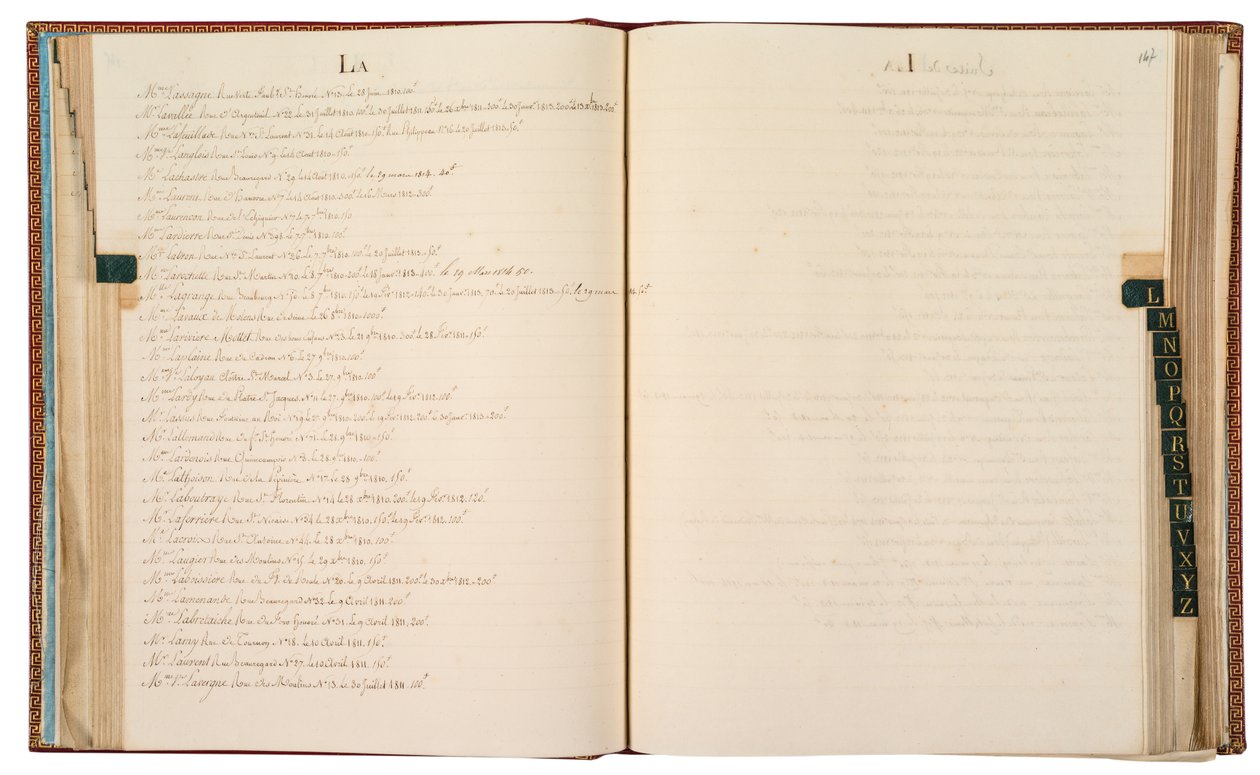 LA
Mme Lassagne Rue Verte faub.g St. honoré No 13. Le 28 Juin 1810. 100f
Mr Lavallée Rue d'Argenteuil No 22. Le 31 Juillet 1810. 100f Le 30 Juillet 1811. 150f Le 26 Xbre 1811. 200f Le 30 Janvr 1813. 200f Le 13 Xbre 1813. 200f
Mme Lafeuillade Rue Nve St. Laurent No 31. Le 14 Août 1810. 150f Rue Philippeau No 16. Le 20 Juillet 1813. 50f
Mme Ve Langlois Rue St. Louis No 9. Le 14 Août 1810. 150f
Mr Lachastre Rue Beauregard No 29. Le 14 Août 1810. 150f le 29 mars 1814. 40f
Mr Laurent Rue No 7. Le 14 Août 1810. 300f Le 16 Mars 1812. 300f
Mme Laurençon Rue de l'Echiquier No 4. Le 7 7bre 1810. 150
Mr Lardierre Rue St. Denis No 98. Le 7 7bre 1810. 100f
Mr Labron Rue Nve St. Laurent No 26. Le 7 7bre 1810. 100f Le 20 Juillet 1813. 50f
Mr Larochette Rue St. Martin No 30. Le 8 7bre 1810. 200f Le 18 Janvr 1813. 400f le 29 Mars 1814. 50.
Mlle Lagrange Rue Beaubourg No 50. Le 8 7bre 1810. 150f Le 10 Fer 1812. 140f Le 30 Janvr 1813. 70f Le 20 Juillet 1813. 50f le 29 mars 1814. 50f
Mme Lavaux de Rue de Seine Le 26 8bre 1810. 1000f
Mme Larivière Mottet Rue des bons Enfans No 23. Le 21 9bre 1810. 300f Le 28 Fer 1811. 150f
Mme Laplaine Rue du Cadran No 6. Le 27 9bre 1810. 100f
Mme Ve Laloyau Cloître St. Marcel No 3. Le 27 9bre 1810. 100f
Mme Lardy Rue du Platre St. Jacques No 11. Le 27 9bre 1810. 100f Le 19 Fer 1812. 100f
Mr Rue Fontaine au Roi No 19. Le 27 9bre 1810. 200f Le 19 Fer 1812. 200f Le 30 Janvr 1813. 200f
Mr Lallemand Rue du fg St. honoré No 71. Le 28 9bre 1810. 150f
Mme Lardenois Rue Quincampoix No 8. Le 28 9bre 1810. 100f
Mme Lathoison Rue de la Pépinière No 17. Le 28 9bre 1810. 150f
Mr Laboulraye Rue St. Florentin No 14. Le 28 Xbre 1810. 200f Le 19 Fer 1812. 120f
Mr Laforrière Rue St. Nicaise No 34. Le 28 Xbre 1810. 150f Le 19 Fer 1812. 100f
Mr Lacroix Rue St. Antoine No 44. Le 28 Xbre 1810. 100f
Mme Laugier Rue des Moulins No 15. Le 29 Xbre 1810. 150f
Mme Laboissière Rue du Pt. de Meule No 20. Le 9 Avril 1811. 200f Le 30 Xbre 1812. 200f
Mme Lamenande Rue Beauregard No 32. Le 9 Avril 1811. 200f
Mme Labretaiche Rue du Four honoré No 31. Le 9 Avril 1811. 200f
Mr Lamy Rue de Tournon No 18. Le 10 Avril 1811. 150f
Mr Laurent Rue Beauregard No 27. Le 10 Avril 1811. 150f
Mme Ve Lavergne Rue des Moulins No 13. Le 30 Juillet 1811. 100f
147
L
M
N
O
P
Q
R
S
T
U
V
X
Y
Z